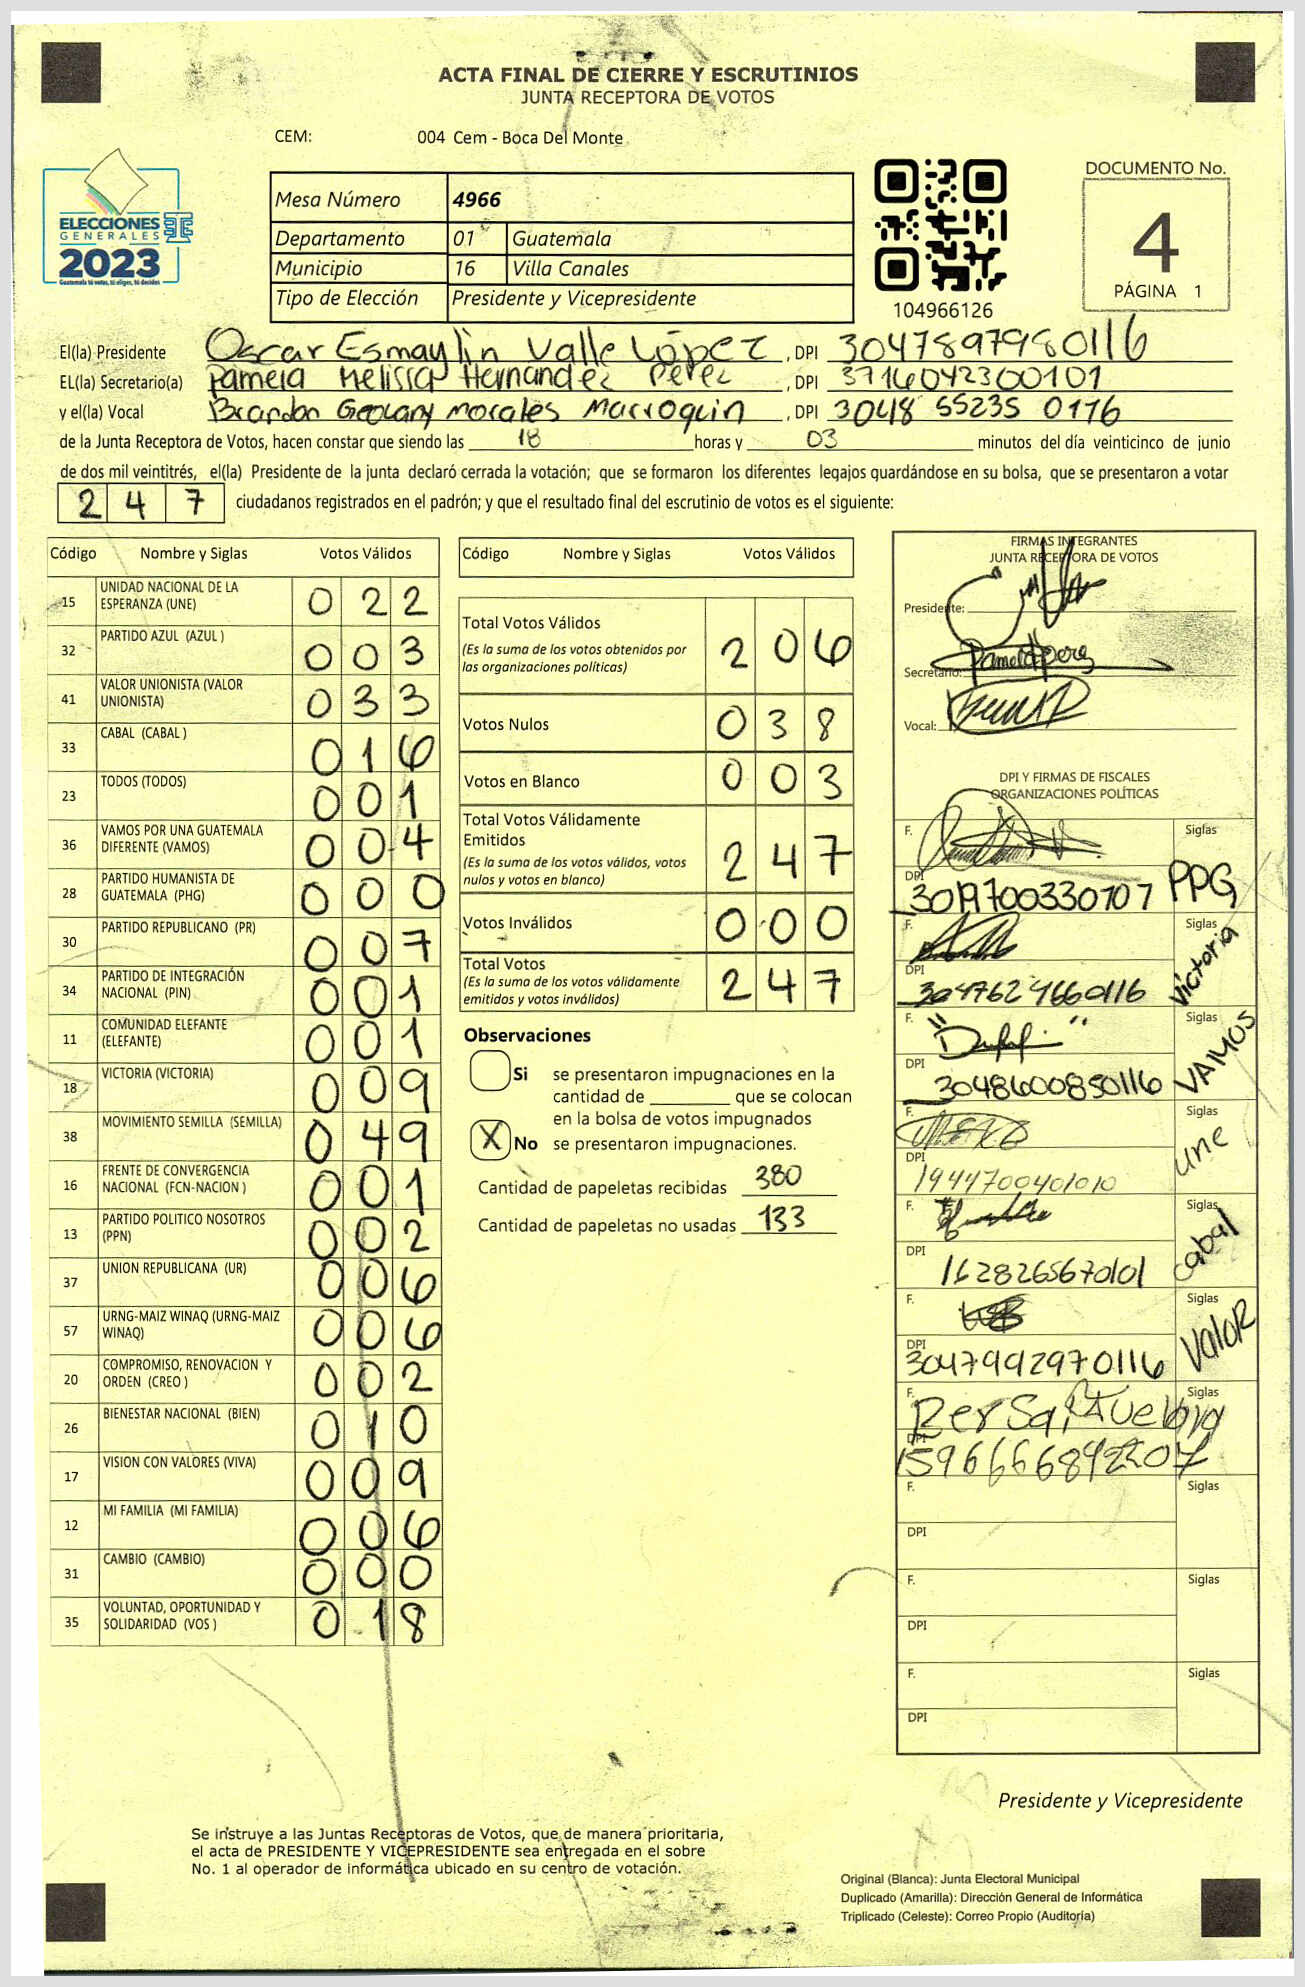 ACTA FINAL DE CIERRE Y ESCRUTINIOS
JUNTA RECEPTORA DE VOTOS
CEM: 004 Cem - Boca Del Monte
ELECCIONES
GENERALES
2023
Guatemala tú votas, tú eliges, tú decides
Mesa Número 4966
Departamento 01 Guatemala
Municipio 16 Villa Canales
Tipo de Elección Presidente y Vicepresidente
104966126
DOCUMENTO No.
4
PÁGINA 1
El(la) Presidente Oscar Esmaylin Valle López, DPI 3047897980116
EL(la) Secretario(a) Pamela Melissa Hernandez Perez, DPI 3716042300101
y el(la) Vocal Brandon Geovany Morales Marroquin, DPI 3048 55235 0116
de la Junta Receptora de Votos, hacen constar que siendo las 18 horas y 03 minutos del día veinticinco de junio
de dos mil veintitrés, el(la) Presidente de la junta declaró cerrada la votación; que se formaron los diferentes legajos guardándose en su bolsa, que se presentaron a votar
2 4 7 ciudadanos registrados en el padrón; y que el resultado final del escrutinio de votos es el siguiente:
Código Nombre y Siglas Votos Válidos
15 UNIDAD NACIONAL DE LA ESPERANZA (UNE) 0 2 2
32 PARTIDO AZUL (AZUL ) 0 0 3
41 VALOR UNIONISTA (VALOR UNIONISTA) 0 3 3
33 CABAL (CABAL ) 0 1 6
23 TODOS (TODOS) 0 0 1
36 VAMOS POR UNA GUATEMALA DIFERENTE (VAMOS) 0 0 4
28 PARTIDO HUMANISTA DE GUATEMALA (PHG) 0 0 0
30 PARTIDO REPUBLICANO (PR) 0 0 7
34 PARTIDO DE INTEGRACIÓN NACIONAL (PIN) 0 0 1
11 COMUNIDAD ELEFANTE (ELEFANTE) 0 0 1
18 VICTORIA (VICTORIA) 0 0 9
38 MOVIMIENTO SEMILLA (SEMILLA) 0 4 9
16 FRENTE DE CONVERGENCIA NACIONAL (FCN-NACION ) 0 0 1
13 PARTIDO POLITICO NOSOTROS (PPN) 0 0 2
37 UNION REPUBLICANA (UR) 0 0 6
57 URNG-MAIZ WINAQ (URNG-MAIZ WINAQ) 0 0 6
20 COMPROMISO, RENOVACION Y ORDEN (CREO ) 0 0 2
26 BIENESTAR NACIONAL (BIEN) 0 1 0
17 VISION CON VALORES (VIVA) 0 0 9
12 MI FAMILIA (MI FAMILIA) 0 0 6
31 CAMBIO (CAMBIO) 0 0 0
35 VOLUNTAD, OPORTUNIDAD Y SOLIDARIDAD (VOS ) 0 1 8
Código Nombre y Siglas Votos Válidos
Total Votos Válidos 2 0 6
(Es la suma de los votos obtenidos por
las organizaciones políticas)
Votos Nulos 0 3 8
Votos en Blanco 0 0 3
Total Votos Válidamente
Emitidos 2 4 7
(Es la suma de los votos válidos, votos
nulos y votos en blanco)
Votos Inválidos 0 0 0
Total Votos 2 4 7
(Es la suma de los votos válidamente
emitidos y votos inválidos)
Observaciones
Si se presentaron impugnaciones en la
cantidad de ________ que se colocan
en la bolsa de votos impugnados
X No se presentaron impugnaciones.
Cantidad de papeletas recibidas 380
Cantidad de papeletas no usadas 133
FIRMAS INTEGRANTES
JUNTA RECEPTORA DE VOTOS
Presidente:
Secretario: Pamela Perez
Vocal:
DPI Y FIRMAS DE FISCALES
ORGANIZACIONES POLÍTICAS
F. Siglas
DPI 3019700330107 PPG
F. Siglas
DPI 3047624660116 Victoria
F. Siglas
DPI 3048600850116 VAMOS
F. Siglas
DPI 1944700401010 une
F. Siglas
DPI 1628265670101 cabal
F. Siglas
DPI 3047992970116 VALOR
F. Siglas
DPI 1596666842207
F. Siglas
DPI
F. Siglas
DPI
F. Siglas
DPI
Presidente y Vicepresidente
Se instruye a las Juntas Receptoras de Votos, que de manera prioritaria,
el acta de PRESIDENTE Y VICEPRESIDENTE sea entregada en el sobre
No. 1 al operador de informática ubicado en su centro de votación.
Original (Blanca): Junta Electoral Municipal
Duplicado (Amarilla): Dirección General de Informática
Triplicado (Celeste): Correo Propio (Auditoría)